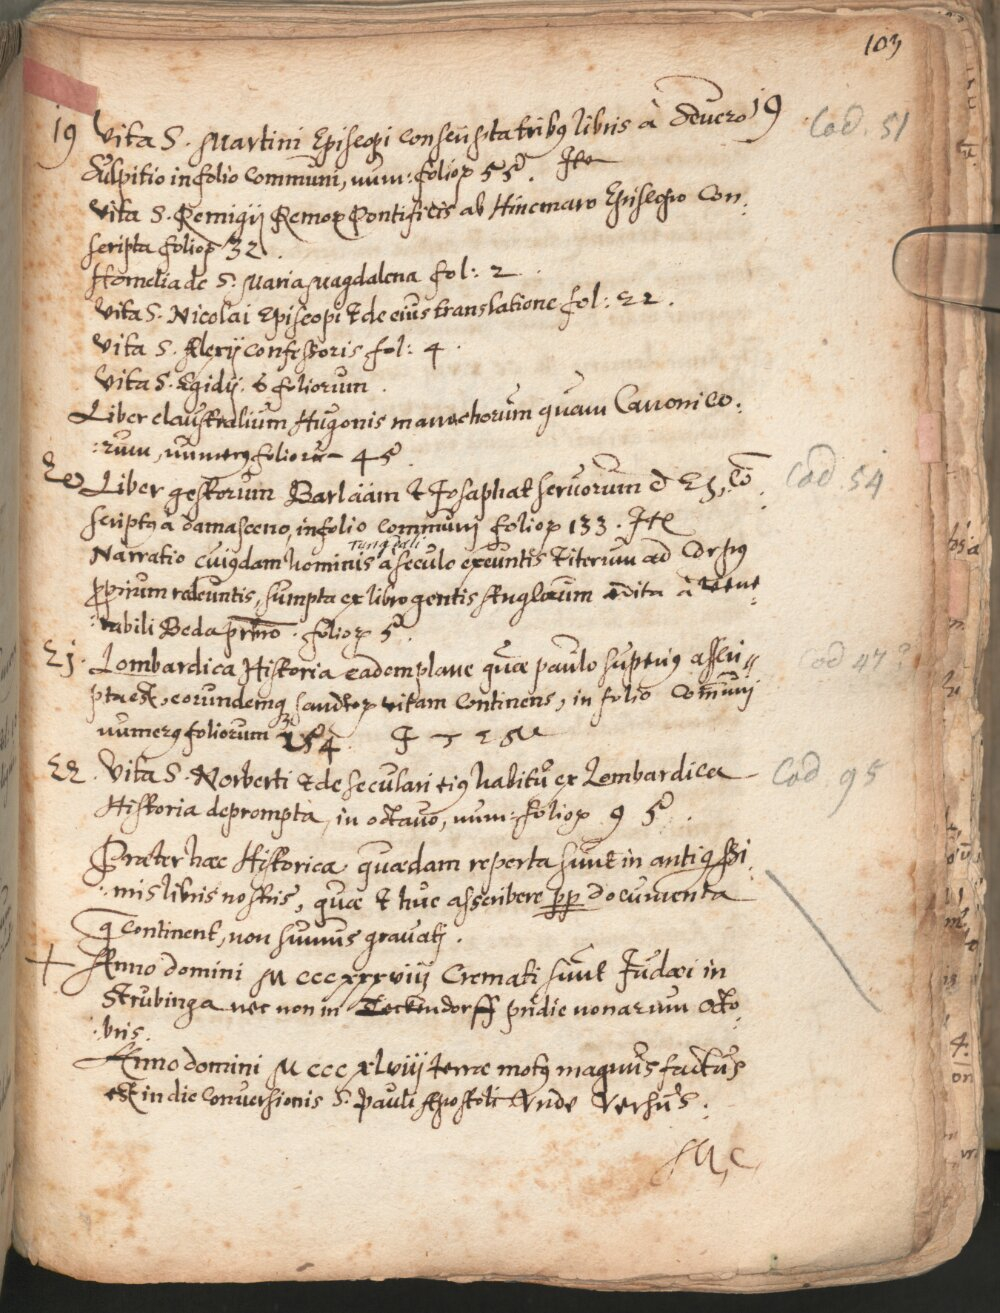 103
19 Vita S. Martini Episcopi conscripta tribꝰ libris à Seuero 19 Cod. 51
Sulpitio in folio communi, num: folioꝝ 55. Itē
Vita S. Remigij Remoꝝ Pontificis ab Hincmaro Episcopo con.
scripta folioꝝ 32.
Homelia de S. Maria Magdalena fol: 2.
Vita S. Nicolai Episcopi & de eius translatione fol: 22.
Vita S. Alexij confessoris fol: 4.
Vita S. Egidij. 6 foliorum.
Liber claustralium Hugonis monachorum quam Canonico.
:rum, numerꝰ foliorū 45.
20 Liber gestorum Barlaam & Josaphat seruorum Cod. 54
scriptꝰ à damasceno, in folio communi folioꝝ 133. Itē
Narratio cuiꝰdam hominis à seculo exeuntis & iterum ad Corpꝰ
ꝓprium redeuntis, sumpta ex libro gentis Anglorum edita à Vene
:rabili Beda prēbro. folioꝝ 5.
21. Lombardica Historia eadem plane quæ paulo superiꝰ assū Cod 47?
pta est, eorundemꝗ sanctoꝝ vitam continens, in folio Communi
numerꝰ foliorum 254
22. Vita S. Norberti & de seculari eiꝰ habitu ex Lombardica Cod. 95
Historia deprompta, in octauo, num: folioꝝ 95.
Præter hæc Historica quædam reperta sunt in antiqꝰssi.
:mis libris nostris, quæ & huc asscribere ꝓꝑ documenta
ꝗ continent, non sumus grauati.
+ Anno domini MCCCxxxviij Cremati sunt Judæi in
Strubinga nec non in Teckendorff pridie nonarum Octo.
:bris.
Anno domini MCCCxlviij terræ motꝰ magnus factus
est in die conuersionis S. Pauli Apostoli Vnde Versus.
M, C